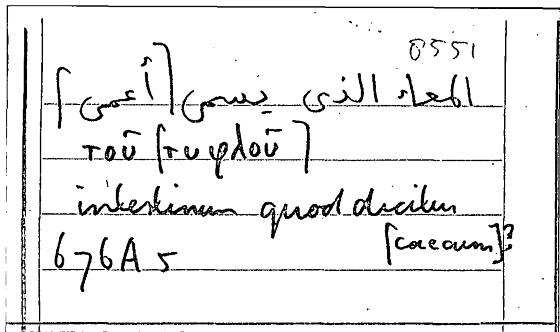 0551
المعاء الذى يسمى [أعمى]
τοῦ [τυφλοῦ]
intestinum quod dicitur
[caecum]?
676A 5